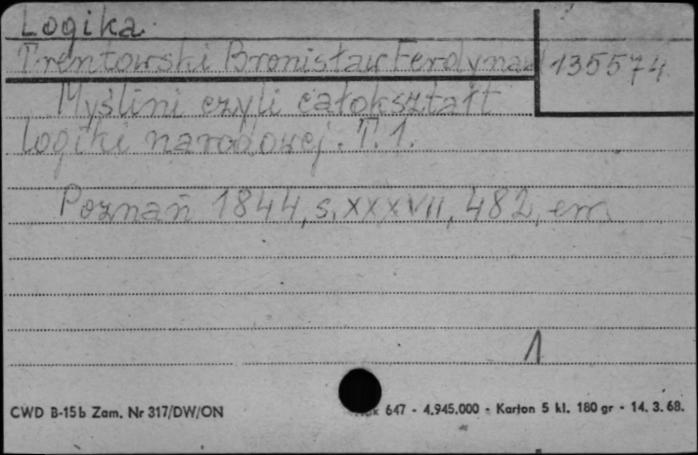 Logika.
Trentowski Bronisław Ferdynand
135574
Myślini czyli całokształt
logiki narodowej. T. 1.
Poznań 1844, s. XXXVII, 482, err.
1
CWD B-15b Zam. Nr 317/DW/ON
647 - 4.945.000 - Karton 5 kl. 180 gr - 14. 3. 68.